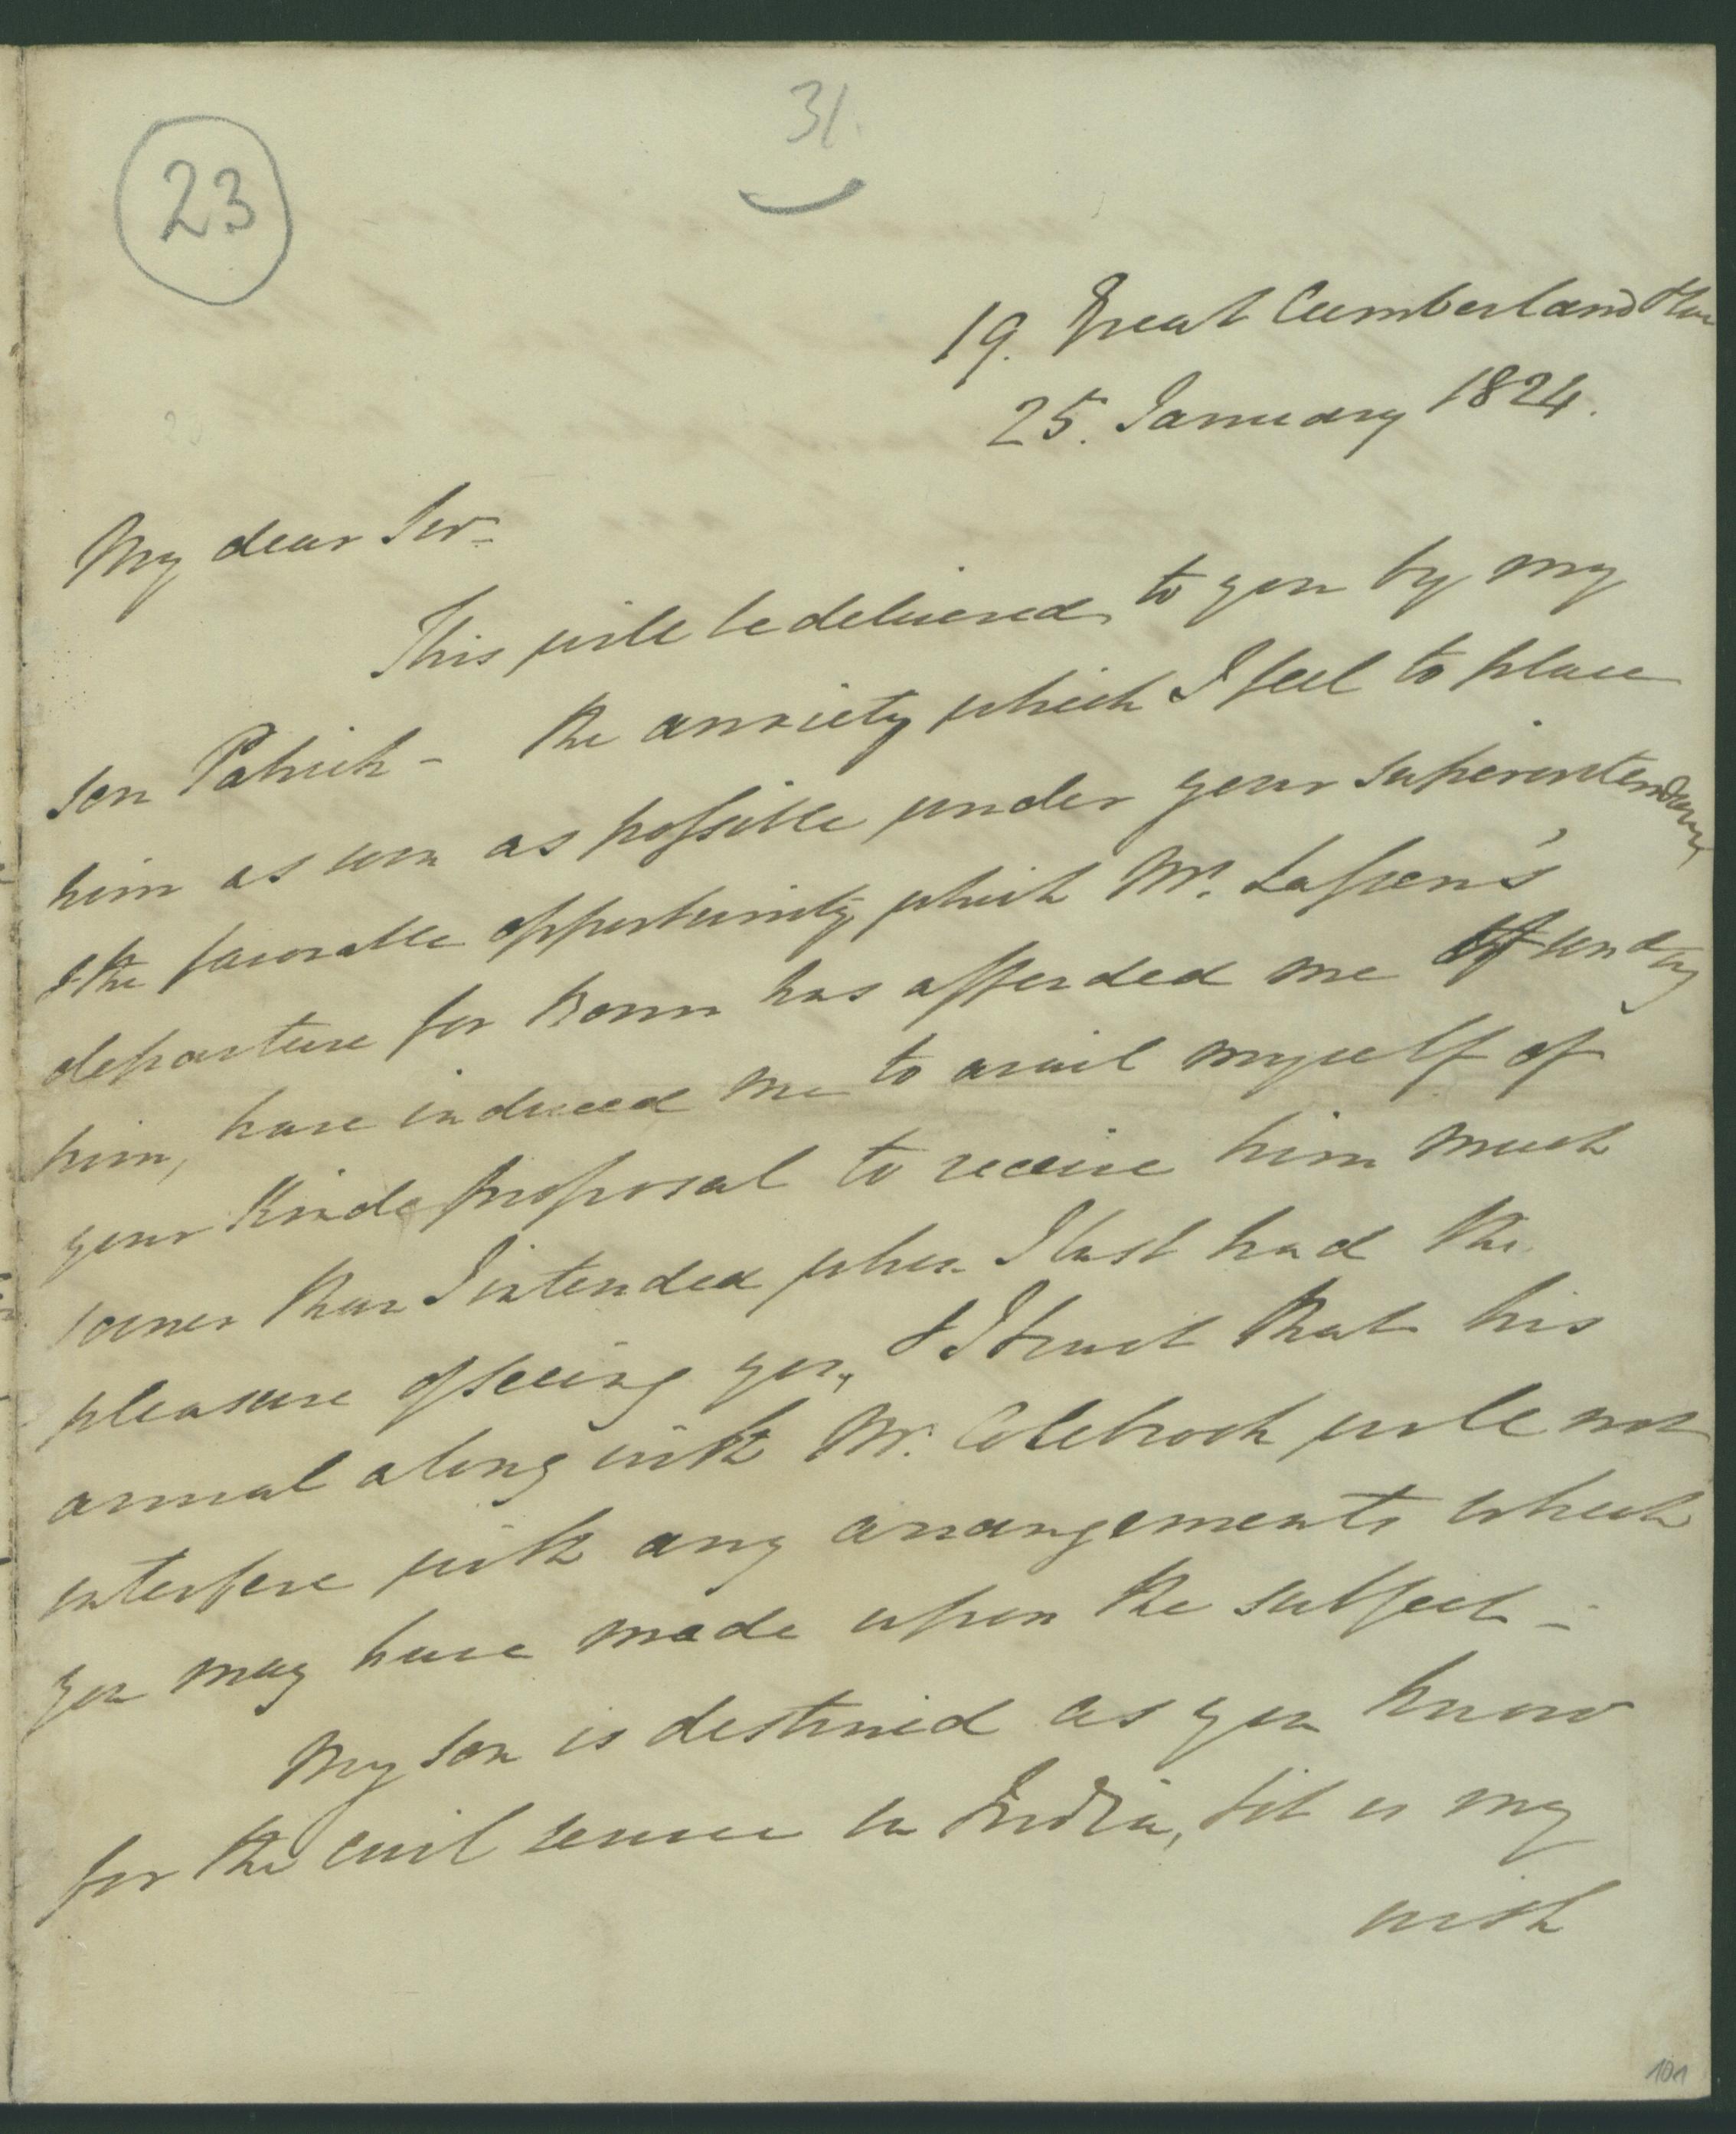 31.
23
19. Great Cumberland Place
25. January 1824.
My dear Sir-
This will be delivered to you by my
son Patrick - The anxiety which I feel to place
him as soon as possible under your superintendance,
& the favorable opportunity which Mr. Lassen's
departure for Bonn has afforded me of sending
him, have induced me to avail myself of
your kind proposal to receive him much
sooner than I intended when I last had the
pleasure of seeing you, & I trust that his
arrival along with Mr. Colebrook will not
interfere with any arrangements which
you may have made upon the subject -
My son is destined as you know
for the civil service in India, & it is my
wish
101